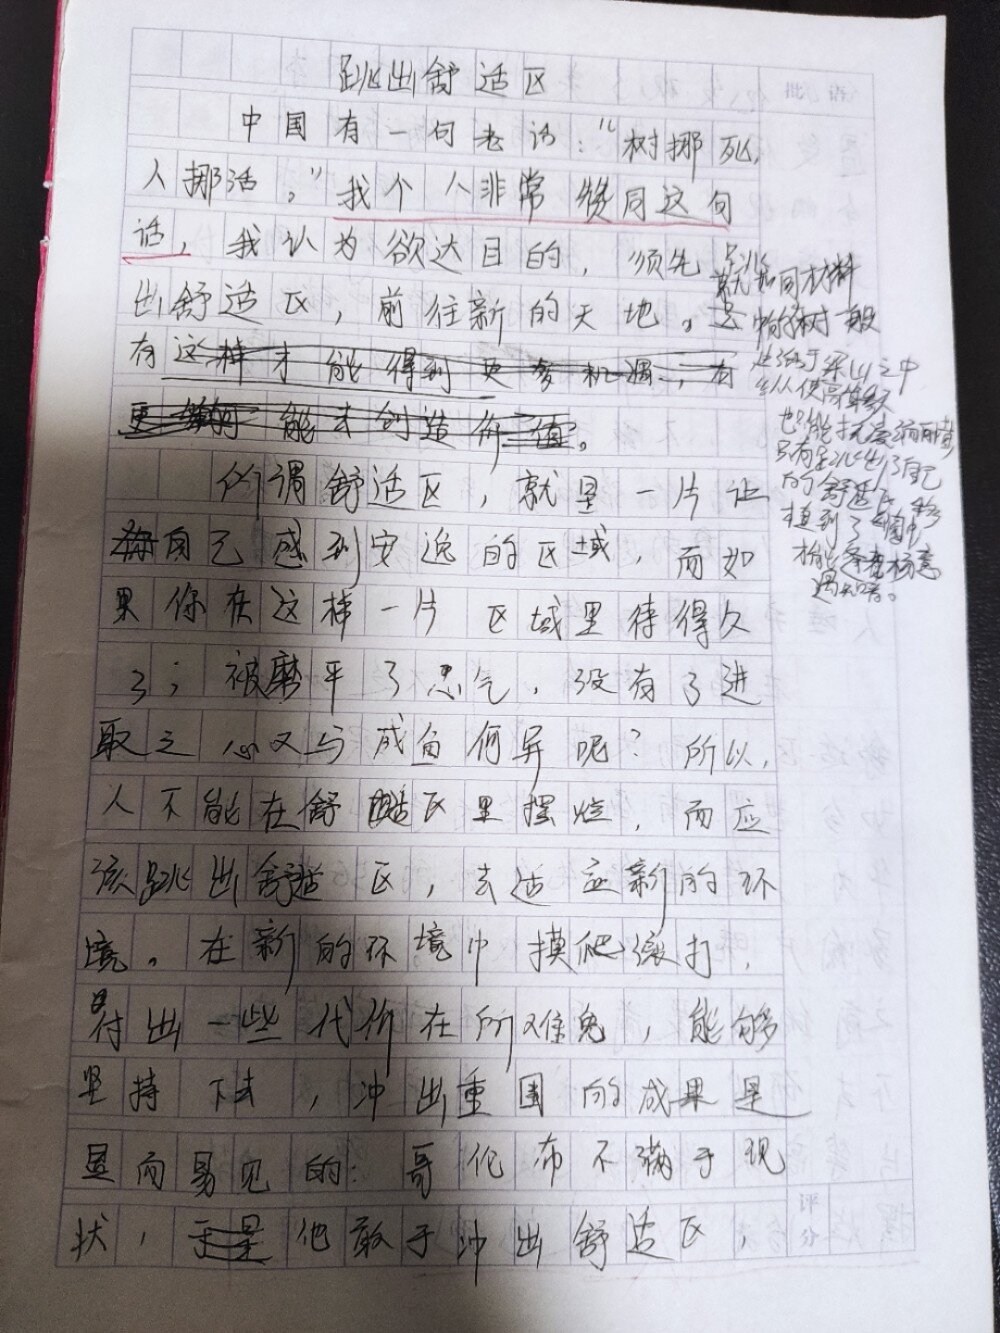 跳出舒适区
批 语
中国有一句老话:"树挪死,
人挪活。"我个人非常赞同这句
话,我认为欲达目的,须先跳
出舒适区,前往新的天地。
有这样才能得到更多机遇,有
能去创造价值。
就如同材料
中的树一般
处于深山之中
纵使高耸
也只能
只有跳出了自己
的舒适区,移
植到了
才能
遇知音。
所谓舒适区,就是一片让
自己感到安逸的区域,而如
果你在这样一片区域里待得久
了;被磨平了志气,没有了进
取之心又与咸鱼何异呢?所以,
人不能在舒适区里摆烂,而应
该跳出舒适区,去适应新的环
境。在新的环境中摸爬滚打,
付出一些代价在所难免,能够
坚持下去,冲出重围的成果是
显而易见的:哥伦布不满于现
状,于是他敢于冲出舒适区,
评分